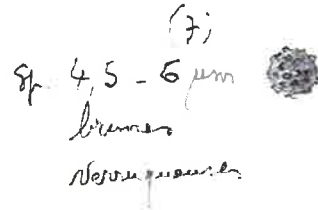 (7)
Sp 4,5 - 6 µm
brunes
verruqueuses